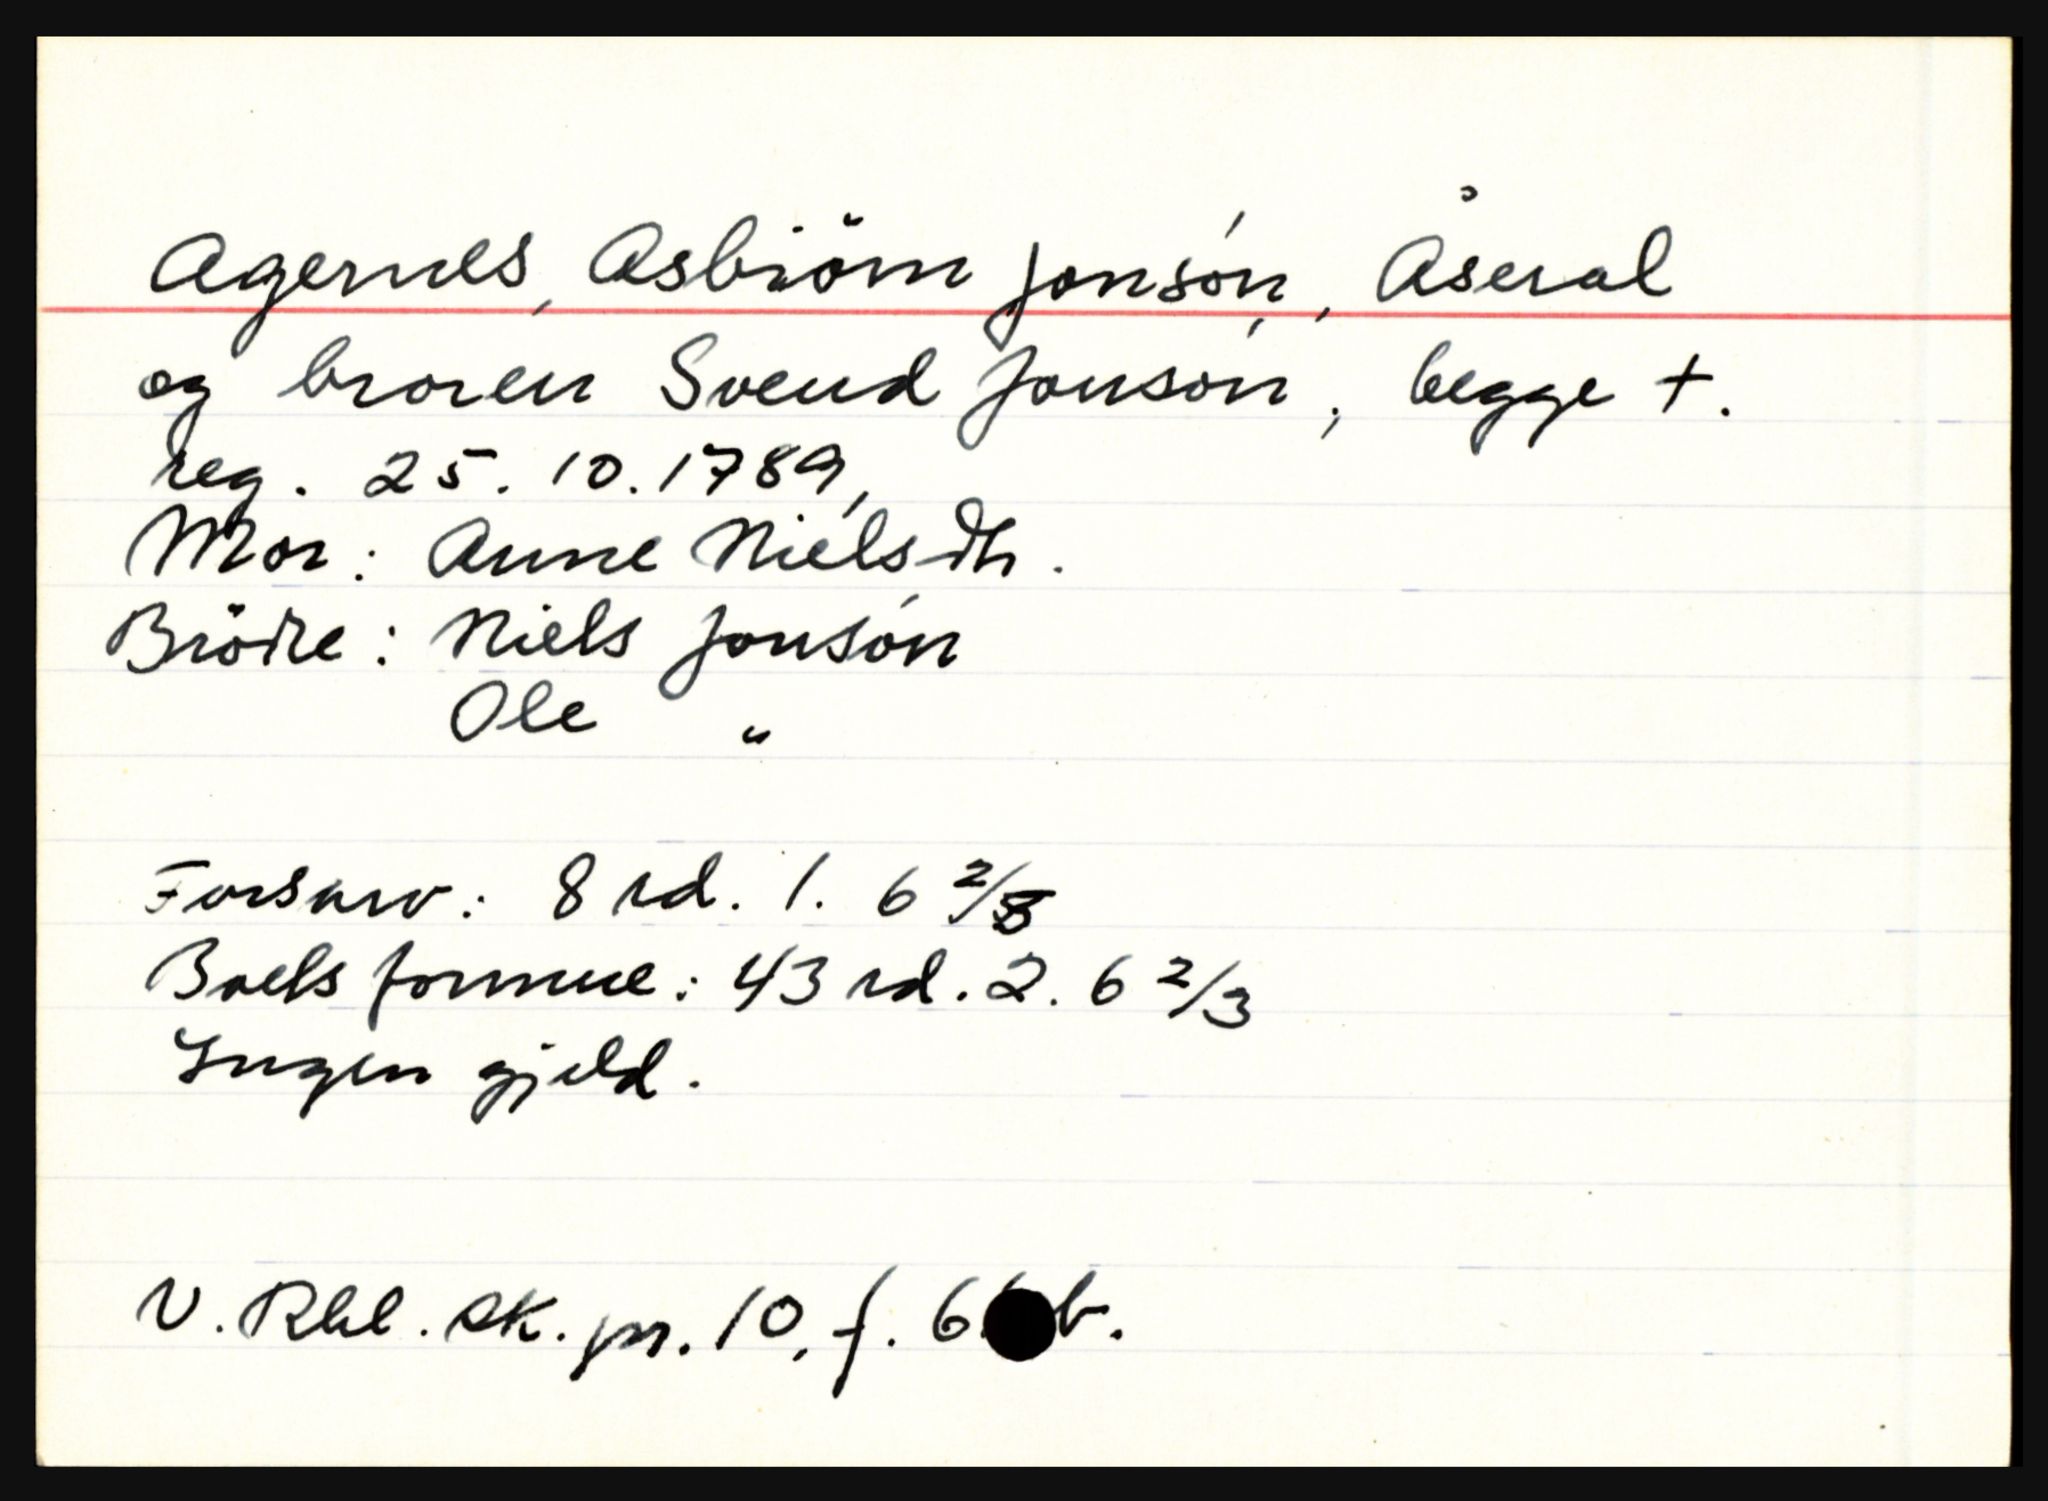 Agernes, Asbiörn Jonsón, Åseral
og broren Svend Jonsón, begge +.
reg. 25. 10. 1789,
Mor: Anne Nielsdtr.
Brödre: Niels Jonsón
Ole "
Farsarv: 8 rd. 1. 6 2/3
Boets formue: 43 rd. 2. 6 2/3
Ingen gjeld.
V. Rbl. sk. pr. 10, f. 6 b.